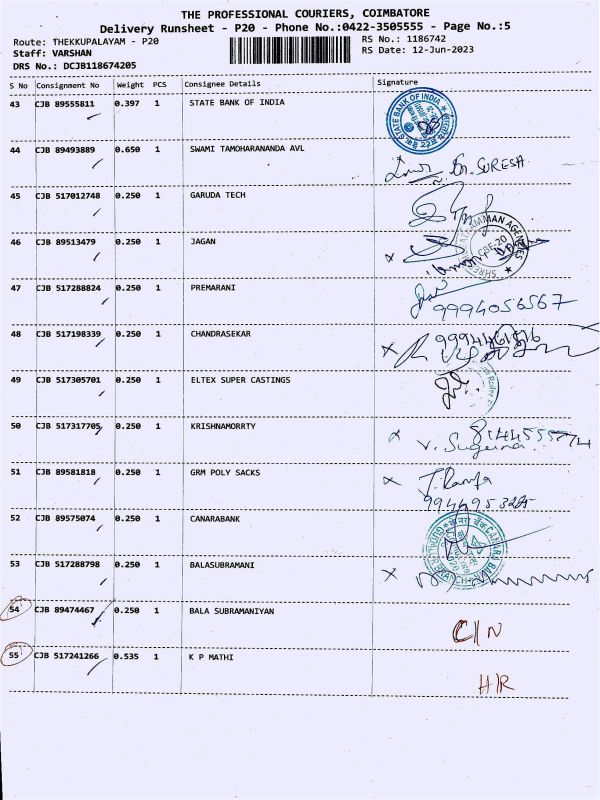 THE PROFESSIONAL COURIERS, COIMBATORE
Delivery Runsheet - P20 - Phone No.:0422-3505555 - Page No.:5
Route: THEKKUPALAYAM - P20
RS No.: 1186742
Staff: VARSHAN
RS Date: 12-Jun-2023
DRS No.: DCJB118674205
S No Consignment No Weight PCS Consignee Details Signature
43 CJB 89555811 0.397 1 STATE BANK OF INDIA
STATE BANK OF INDIA
44 CJB 89493889 0.650 1 SWAMI TAMOHARANANDA AVL
SURESH
45 CJB 517012748 0.250 1 GARUDA TECH
46 CJB 89513479 0.250 1 JAGAN
AMMAN AGENCIES
CBE-20
47 CJB 517288824 0.250 1 PREMARANI
9994056567
48 CJB 517198339 0.250 1 CHANDRASEKAR
49 CJB 517305701 0.250 1 ELTEX SUPER CASTINGS
50 CJB 517317705 0.250 1 KRISHNAMORRTY
V. Suguna
51 CJB 89581818 0.250 1 GRM POLY SACKS
52 CJB 89575074 0.250 1 CANARABANK
CANARA BANK
53 CJB 517288798 0.250 1 BALASUBRAMANI
54 CJB 89474467 0.250 1 BALA SUBRAMANIYAN
C/N
55 CJB 517241266 0.535 1 K P MATHI
H/R